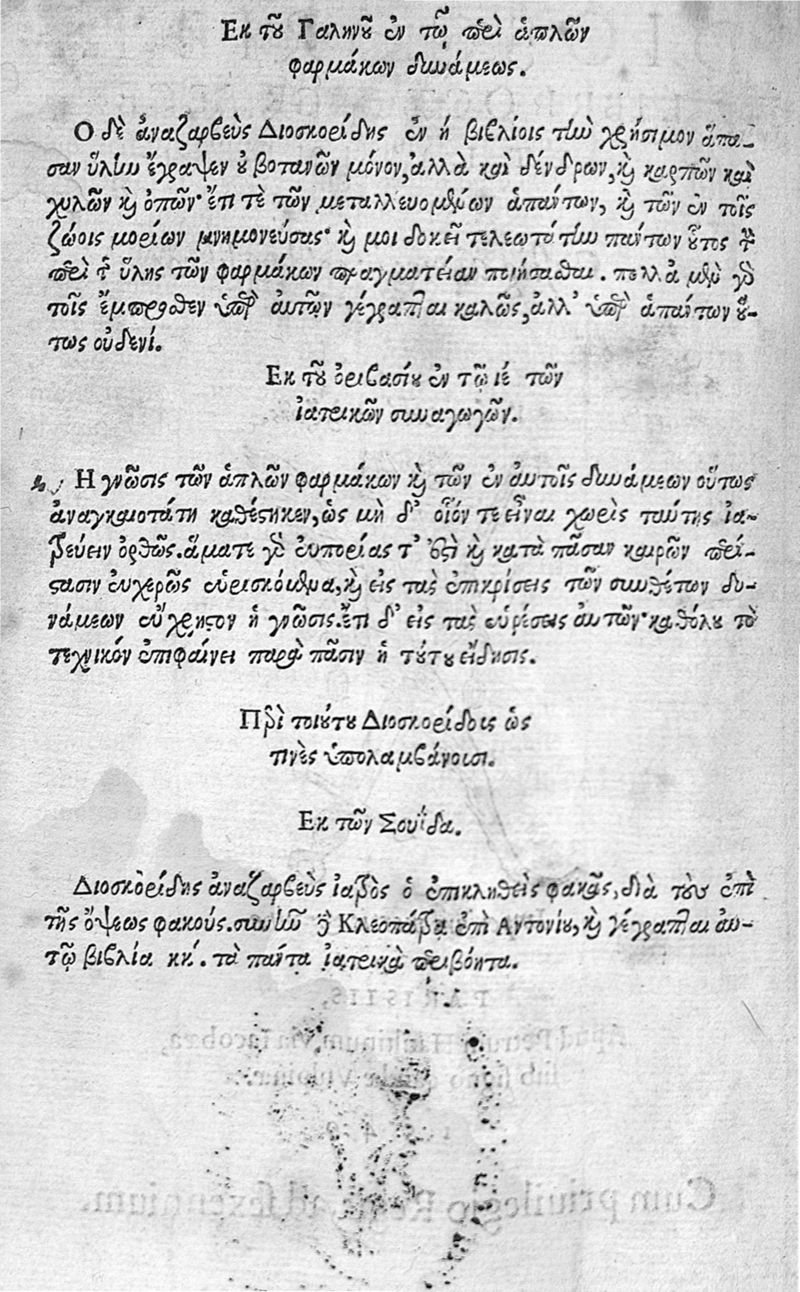 Εκ τοῦ Γαληνοῦ ἐν τῷ περὶ ἁπλῶν
φαρμάκων δυνάμεως.
Ο δὲ ἀναζαρβεὺς Διοσκορίδης ἐν ἡ βιβλίοις τὴν χρήσιμον ἅπα-
σαν ὕλην ἔγραψεν ȣ βοτανῶν μόνον, ἀλλὰ καὶ δένδρων, κ̀ καρπῶν καὶ
χυλῶν κ̀ ὀπῶν· ἔτι τὲ τῶν μεταλλευομένων ἁπάντων, κ̀ τῶν ἐν τοῖς
ζώοις μορίων μνημονεύσας· κ̀ μοι δοκεῖ τελεωτάτην πάντων ȣ̃τος τὴν
περὶ τῆς ὕλης τῶν φαρμάκων πραγματείαν ποιήσασθαι. πολλὰ μὲν γὰρ
τοῖς ἔμπροσθεν ὑπὲρ αυτῶν γέγραπται καλῶς, ἀλλ’ ὑπὲρ ἁπάντων ȣ̔́-
τως ουδενί.
Εκ τοῦ ὀριβασίȣ ἐν τῷ ιέ τῶν
ἰατρικῶν συναγωγῶν.
Η γνῶσις τῶν ἁπλῶν φαρμάκων κ̀ τῶν ἐν αυτοῖς δυνάμεων οὕτως
ἀναγκαιοτάτη καθέστηκεν, ὡς μὴ δ’ οἷόν τε εἶναι χωρὶς ταύτης ἰα-
τρεύειν ὀρθῶς. ἅματε γὰρ ευπορίας τ’ ἐστὶ κ̀ κατὰ πᾶσαν καιρῶν περί-
στασιν ευχερῶς ευρισκόμεθα, κ̀ εἰς τὰς ἐπικρίσεις τῶν συνθέτων δυ-
νάμεων εύχρηστον ἡ γνῶσις. ἔτι δ’ εἰς τὰς εὑρέσεις αυτῶν· καθόλȣ τὸ
τεχνικόν ἐπιφαίνει παρὰ πᾶσιν ἡ τȣ́τȣ εἴδησις.
Περὶ τοιȣ́τȣ Διοσκορίδοις ὡς
τινὲς ὑπολαμβάνουσι.
Εκ τῶν Σουΐδα.
Διοσκορίδης ἀναζαρβεὺς ἰατρὸς ὁ ἐπικληθεὶς φακᾶς, διὰ τοὺς ἐπὶ
τῆς ὄψεως φακούς. συνῆν δὲ Κλεοπάτρα ἐπὶ Αντονίȣ, κ̀ γέγραπται αυ-
τῷ βιβλία κκ΄. τὰ πάντα ἰατρικὰ περιβόητα.
PARISIIS,
Apud Petrum Haultinum, via Iacobæa,
sub signo caudæ Vulpinæ.
Cum priuilegio Regis ad sexennium.